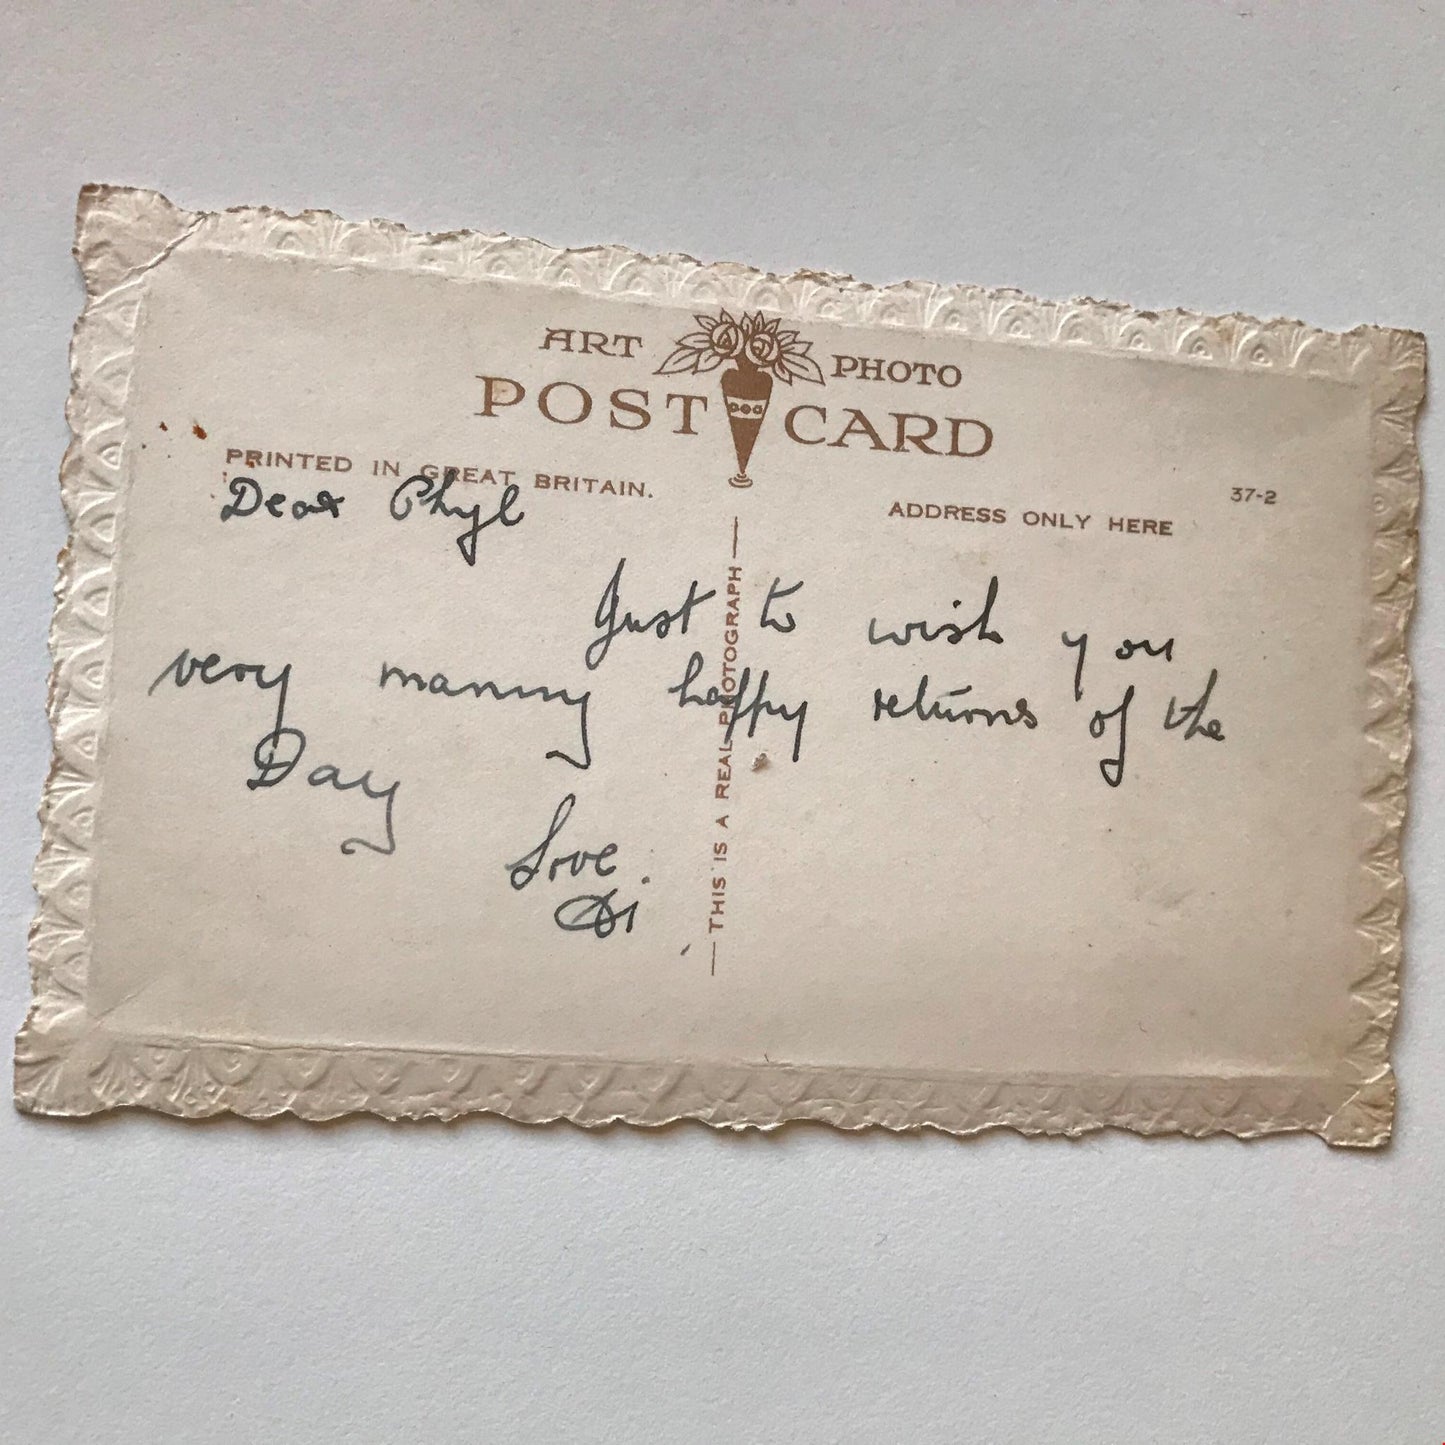 ART PHOTO
POST CARD
PRINTED IN GREAT BRITAIN.
ADDRESS ONLY HERE
37-2
THIS IS A REAL PHOTOGRAPH
Dear Phyl
Just to wish you
very many happy returns of the
Day
Love.